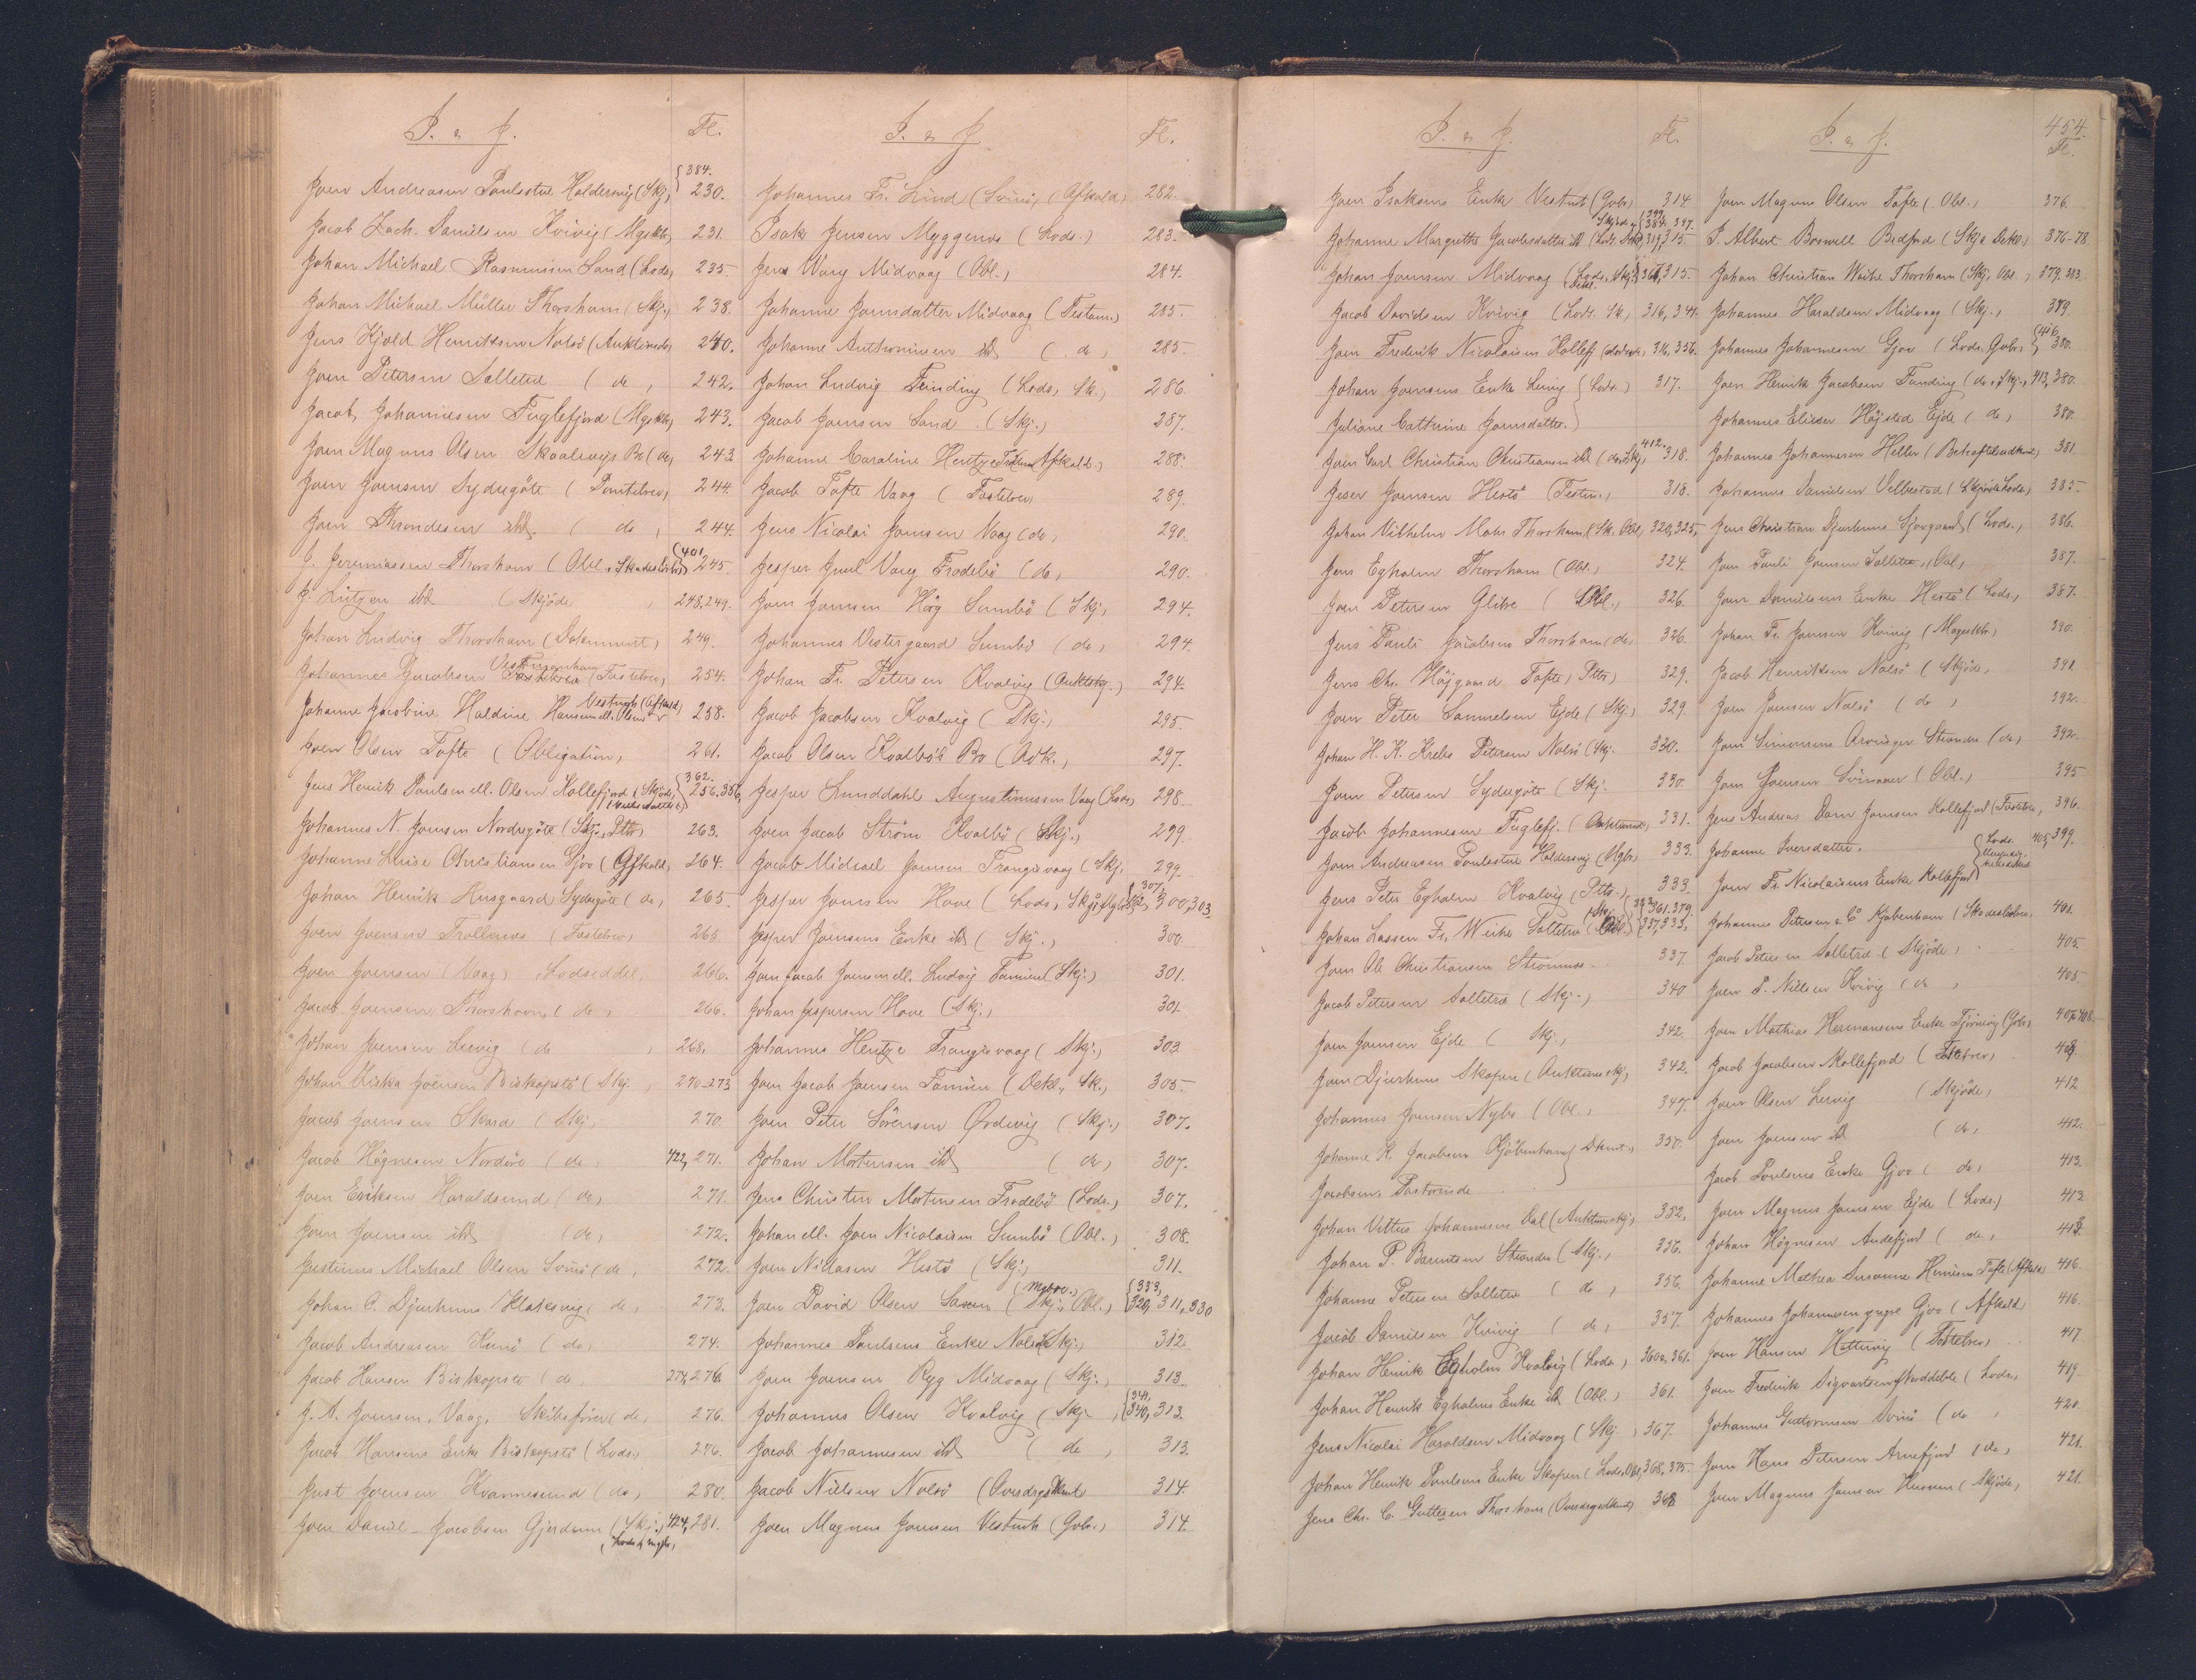 I. & J.
Fl.
Joen Andreasen Paulsstue Haldersvig (Skj., {384. 230.
Jacob Zach. Danielsen Kvivig (Mgskbr, 231.
Johan Michael Rasmussen Sand (Lods, 235.
Johan Michael Müller Thorshavn (Skj., 238.
Jens Kjöld Henriksen Nolsö (Auktionsskj, 240.
Joen Petersen Selletræ (do, 242.
Jacob Johannesen Fuglefjord (Mgskbr, 243.
Joen Magnus Olsen Skaalevigs Bo (do, 243
Joen Joensen Sydregöte (Pantebrev, 244.
Joen Throndesen ibd. (do, 244.
J. Jeremiassen Thorshavn (Obl., Skadeslösbr) (401, 245.
J. Lützen ibd (Skjöde 248, 249.
Johan Ludvig Thorshavn (Dokument) 249.
Johannes Jacobsen Vestmanhavn (Fæstebrev) 254.
Johanne Jacobine Haldine Hansen ell. Olsen Vestmh (Afkald) 258.
Joen Olsen Tofte (Obligation, 261.
Jens Henrik Poulsen ell. Olsen Kollefjord (Skjöde, {362. 256. 356,
Johannes N. Joensen Nordregöte (Skj., Pttbr) 263.
Johanne Luise Christiansen Gjov (Afkald, 264.
Johan Henrik Husgaard Sydregöte (do, 265.
Joen Joensen Trollenæs (Fæstebrev) 265
Joen Joensen (Vaag) Lodseddel. 266.
Jacob Joensen Thorshavn (do, 266.
Johan Joensen Lervig (do, 268.
Johan Diska Joensen Biskopstö (Skj., 270-273
Jacob Joensen Skard (Skj., 270.
Jacob Högnesen Norderö (do, 422, 271.
Joen Eriksen Haraldsund (do, 271.
Joen Joensen ibd (do, 272.
Justinus Michael Olsen Svinö (do, 272.
Johan C. Djurhuus Klaksvig (do, 273.
Jacob Andreasen Kunö (do, 274.
Jacob Hansen Biskopstö (do, 277, 276.
J. A. Joensen, Vaag, Skibsförer (do, 276.
Jacob Hansens Enke Biskopstö (Lods, 276.
Just Joensen Kvannesund (do, 280.
Joen Daniel Jacobsen Gjerdum (Skj.) 424, 281.
(Lods & mgb,
I. & J.
Fl.
Johannes Fr. Lund (Svinö, (Afkald) 282.
Isak Jensen Myggenæs (Lods.) 283.
Jens Wang Midvaag (Obl., 284.
Johanne Joensdatter Midvaag (Testam.) 285.
Johanne Anthonisen ibd (do, 285.
Johan Ludvig Funding (Lods, Sk., 286.
Jacob Joensen Sand (Skj., 287.
Johanne Caroline Hentze Afkald.) 288.
Jacob Tofte Vaag (Fæstebrev 289.
Jens Nicolai Joensen Vaag (do, 290.
Jesper Juul Vang Frodebö (do, 290.
Joen Joensen Hörg Sumbö (Skj, 294.
Johannes Vestergaard Sumbö (do, 294.
Johan Fr. Petersen Kvalvig (Auktskj.) 294.
Jacob Jacobsen Kvalvig (Skj., 295.
Jacob Olsen Kvalbös Bo (Adk., 297.
Jesper Lunddahl Augustinussen Vaag (Lods) 298.
Joen Jacob Ström Kvalbö (Skj., 299.
Jacob Michael Joensen Trangisvaag (Skj. 299.
Jesper Joensen Hove (Lods, Skj, {307, 300, 303
Jesper Joensens Enke ibd (Skj., 300.
Joen Jacob Joensen ell. Ludvig Famien (Skj.) 301.
Johan Jespersen Hove (Skj., 301.
Johannes Hentze Trangisvaag (Skj., 303
Joen Jacob Joensen Famien (Dekl., Sk., 305.
Joen Peter Sörensen Ördevig (Skj., 307.
Johan Mortensen ibd (do, 307.
Jens Christian Mortensen Frodebö (Lods., 307.
Johan ell. Joen Nicolaisen Sumbö (Obl., 308.
Joen Niclasen Hestö (Skj., 311.
Joen David Olsen (Skj., Obl.) {333, 320, 311, 330
Johannes Poulsens Enke Nolsö (Skj., 312
Joen Joensen Ryg Midvaag (Skj., 313.
Johannes Olsen Kvalvig (Skj., {341, 340, 313
Jacob Johannesen ibd (do, 313.
Jacob Nielsen Nolsö (Overdrgsdkmt 314.
Joen Magnus Joensen Vestmh (Gvbr.) 314.
I. & J.
Fl.
Joen Isaksens Enke Vestmh (Gvbr, 314.
Johanne Margrethe Jacobsdatter ibd (Lods, 314, 315
Johan Joensen Midvaag (Lods, Skj., 367, 315.
Jacob Davidsen Kvivig (Lods. Sk, 316, 341.
Joen Frederik Nicolaisen Kollefj (do, 316, 356.
Johan Joensens Enke Leinig (Lods.) 317.
Juliane Cathrine Joensdatter.
Joen Carl Christian Christiansen ibd (do, Skj, 412. 318.
Jeser Joensen Hestö (Testm., 318.
Johan Vilhelm Mohr Thorshavn (Sk. Obl, 320, 325,
Jens Egholm Thorshavn (Obl., 324.
Joen Petersen Glibre (Obl., 326.
Jens Pauli Jacobsen Thorshavn (do, 326.
Jens Chr. Höjgaard Tofte, Pttbr, 329.
Joen Peter Samuelsen Ejde (Skj., 329.
Johan H. K. Krebs Petersen Nolsö (Skj. 330.
Joen Petersen Sydregöte (Skj. 330.
Jacob Johannesen Fuglefj. (Auktionsskj, 331.
Joen Andreasen Poulsstue Haldersvig (Mgbr, 333.
Jens Peter Egholm Kvalvig (Pttbr.) 333.
Johan Lassen Fr. Weihe Selletræ (Skj., Obl. {353, 361. 379. 337, 335,
Joen Ole Christiansen Strömnæs 337.
Jacob Petersen Selletræ (Skj., 340
Joen Joensen Ejde (Skj., 342.
Joen Djurhuus Skopen (Auktionsskj, 342.
Johannes Joensen Nybo (Obl., 347.
Johanne K. Jacobsen Kjöbenhavn } Dkmt, 350.
Jacobsen, Pastorinde
Johan Vitus Johannesens Dal (Auktionsskj, 352,
Johan P. Berentsen Strender (Skj., 356.
Johanne Petersen Selletræ (do, 356
Jacob Danielsen Kvivig (do, 357.
Johan Henrik Egholm Kvalvig (Lods., 360a, 361.
Johan Henrik Egholms Enke ibd (Obl., 361.
Jens Nicolai Haraldsen Midvaag (Skj., 367.
Johan Henrik Poulsens Enke Skopen (Lods, Obl, 368, 375.
Jens Chr. C. Guttesen Thorshavn (Overdragsdkmt) 368
I. & J.
454.
Fl.
Joen Magnus Olsen Tofte (Obl., 376.
I. Albert Boswell Bedford (Skj & Dekl, 376-78
Johan Christian Weihe Thorshavn (Skj, Obl., 379. 383.
Johannes Haraldsen Midvaag (Skj., 379.
Johannes Johannesen Gjov (Lods, Gvbr, {416, 380.
Joen Henrik Jacobsen Funding (do, Skj., 413, 380.
Johannes Elieser Höjsted Ejde (do, 380.
Johannes Johannesen Heller (Behæftelsesdkmt, 381.
Johannes Danielsen Velbestad (Skjöde Lods, 385.
Jens Christian Djurhuus Sjovgaard (Lods., 386.
Joen Pauli Joensen Selletræ, (Obl, 387.
Joen Danielsens Enke Hestö (Lods, 387.
Johan Fr. Joensen Kvivig (Mageskbr, 390.
Jacob Henriksen Nolsö (Skjöde, 391.
Joen Joensen Nolsö (do, 392.
Joen Simonsens Arvinger Strender (do, 392.
Joen Joensen Svinaaer (Obl., 395
Jens Andreas Dam Joensen Kollefjord (Fæstebr, 396.
Johanne Iversdatter. {Lods. 405, 399.
Joen Fr. Nicolaisens Enke Kollefjord
Johannes Petersen & Co Kjöbenhavn (Skadeslösbrev, 401.
Jacob Petersen Selletræ (Skjöde, 405.
Joen P. Nielsen Kvivig (do, 405.
Joen Mathias Hermansens Enke Tjörnevig (Gvbr, 407, 408.
Jacob Jacobsen Kollefjord (Fæstebrev, 409.
Joen Olsen Lervig (Skjöde, 412
Joen Joensen ibd (do, 412.
Jacob Poulsens Enke Gjov (do, 413.
Joen Magnus Joensen Ejde (Lods.) 413
Johan Högnesen Andefjord (do, 413.
Johanne Mathea Susanne Hennisen Tofte (Afkald) 416.
Johannes Johannesen yngre Gjov (Afkald 416.
Joen Hansen Hattervig (Fæstebrev) 417
Joen Frederik Sigvartsen Norddeble (Lods, 419.
Johannes Guttormsen Svinö (do, 420.
Joen Hans Petersen Arnefjord (do, 421.
Joen Magnus Joensen Husum (Skjöde, 421.